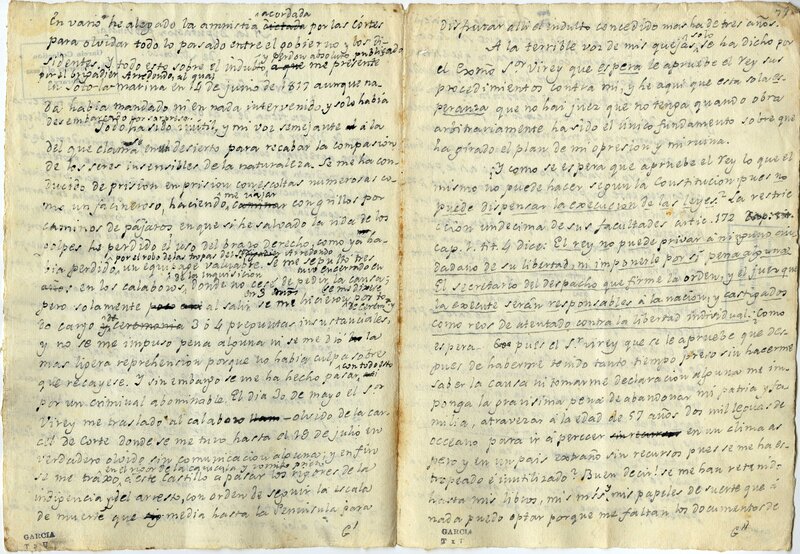 acordada
En vano he alegado la amnistia dictada por las Córtes
para olvidar todo lo pasado entre el gobierno y los di-
sidentes. Y todo esto sobre el indulto y perdon absoluto publicado
por el brigadier Arredondo, al qual me presenté
en Soto-la marina en 14 de junio de 1817 aunque na-
da habia mandado ni en nada intervenido, y solo habia
desembarcado por sorpresa.
Todo ha sido inutil, y mi voz semejante á la
del que clama en desierto para recabar la compasión
de los seres insensibles de la naturaleza. Se me ha con-
ducido de prision en prision con escoltas numerosas co-
mo un facineroso, haciendome viajar con grillos por
caminos de pájaros en que si he salvado la vida de los
golpes he perdido el uso del brazo derecho, como ya ha-
bia perdido, por el robo de las tropas de Arredondo
un equipage valuable. Se me sepultó tres
años, en los calabozos de la inquisicion, donde no cesé de pedir la causa;
pero solamente al salir se me hicieron por
to cargo 3 ó 4 preguntas insustanciales,
y no se me impuso pena alguna ni se me dió la
mas ligera reprehension porque no habia culpa sobre
que recayese. Y sin embargo se me ha hecho pasar con todo esto
por un criminal abominable. El dia 30 de mayo el Sor.
Virey me trasladó al calabozo olvido de la car-
cel de Corte donde se me tuvo hasta el 18 de julio en
verdadero olvido sin comunicacion alguna; y en fin
se me traxo, á este castillo a pasar los rigores de la
indigencia y el arresto, con orden de seguir la escala
de muerte que media hasta la Peninsula para
GARCIA
disfrutar allá el indulto concedido mas ha de tres años.
A la terrible voz de mis quejas, solo se ha dicho por
el Exmo Sr Virey que espera le apruebe el rey sus
procedimientos contra mí; y he aqui que esta sola es-
peranza que no hai juez que no tenga quando obra
arbitrariamente ha sido el único fundamento sobre que
ha girado el plan de mi opresion y mi ruina.
¿Y como se espera que apruebe el rey lo que el
mismo no puede hacer segun la Constitucion, pues no
puede dispensar la execucion de las leyes? La restric-
ccion undecima de sus facultades artic. 172
cap. 1. tit. 4 dice: El rey no puede privar á ningun ciu-
dadano de su libertad, ni imponerle por sí pena alguna.
El secretario del despacho que firme la orden, y el juez que
la execute serán responsables á la nacion, y castigados
como reos de atentado contra la libertad individual. ¿Como
espera pues el Sr virey se le apruebe que des-
pues de haberme tenido tanto tiempo preso sin hacerme
saber la causa ni tomarme declaracion alguna me im-
ponga la gravisima pena de abandonar mi patria y fa-
milia, atravezar á la edad de 57 años dos mil leguas de
occeano para ir á perecer en un clima es-
pero y en un pais extraño sin recursos pues se me ha es-
tropeado é inutilizado? Buen decir! se me han retenido
hasta mis libros, mis mss. mis papeles de suerte que á
nada puedo optar porque me faltan los documentos de
GARCIA